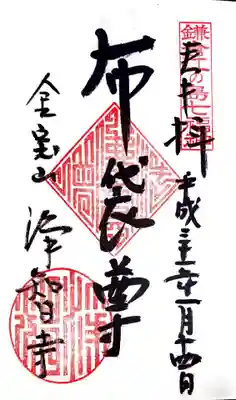 鎌倉江の島七福神
奉拝 平成三十一年一月十四日
布袋尊
金宝山 浄智寺